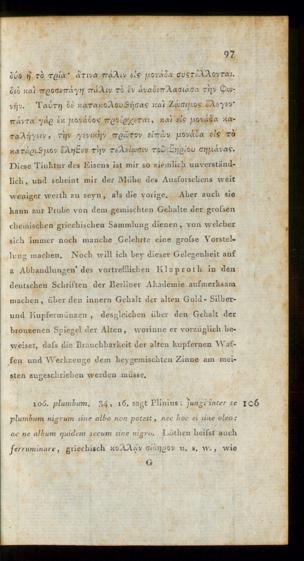 97
δύο ἢ τὸ τρία· ἅτινα πάλιν εἰς μονάδα συστέλλονται.
διὸ καὶ προσεπάγη πάλιν τὸ ἓν ἀναδιπλασιάσα τὴν φω-
νήν. Ταύτῃ δὲ κατακολουθήσας καὶ Ζώσιμος ἔλεγεν·
πάντα γὰρ ἐκ μονάδος προέρχεται, καὶ εἰς μονάδα κα-
ταλήγειν, τὴν γενικὴν πρῶτον εἰπὼν μονάδα εἰς τὸ
κατάριθμον ἔληξεν τὴν τελείωσιν τοῦ ξηρίου σημάνας.
Diese Tinktur des Eisens ist mir so ziemlich unverständ-
lich, und scheint mir der Mühe des Ausforschens weit
weniger werth zu seyn, als die vorige. Aber auch sie
kann zur Probe von dem gemischten Gehalte der grofsen
chemischen griechischen Sammlung dienen, von welcher
sich immer noch manche Gelehrte eine grofse Vorstel-
lung machen. Noch will ich bey dieser Gelegenheit auf
2 Abhandlungen des vortrefflichen Klaproth in den
deutschen Schriften der Berliner Akademie aufmerksam
machen, über den innern Gehalt der alten Gold- Silber-
und Kupfermünzen, desgleichen über den Gehalt der
bronzenen Spiegel der Alten, worinne er vorzüglich be-
weiset, dafs die Brauchbarkeit der alten kupfernen Waf-
fen und Werkzeuge dem beygemischten Zinne am mei-
sten zugeschrieben werden müsse.
106. plumbum. 34, 16. sagt Plinius: jungi inter se 106
plumbum nigrum sine albo non potest, nec hoc ei sine oleo:
ac ne album quidem secum sine nigro. Löthen heifst auch
ferruminare, griechisch κολλᾶν σίδηρον u. s. w., wie
G